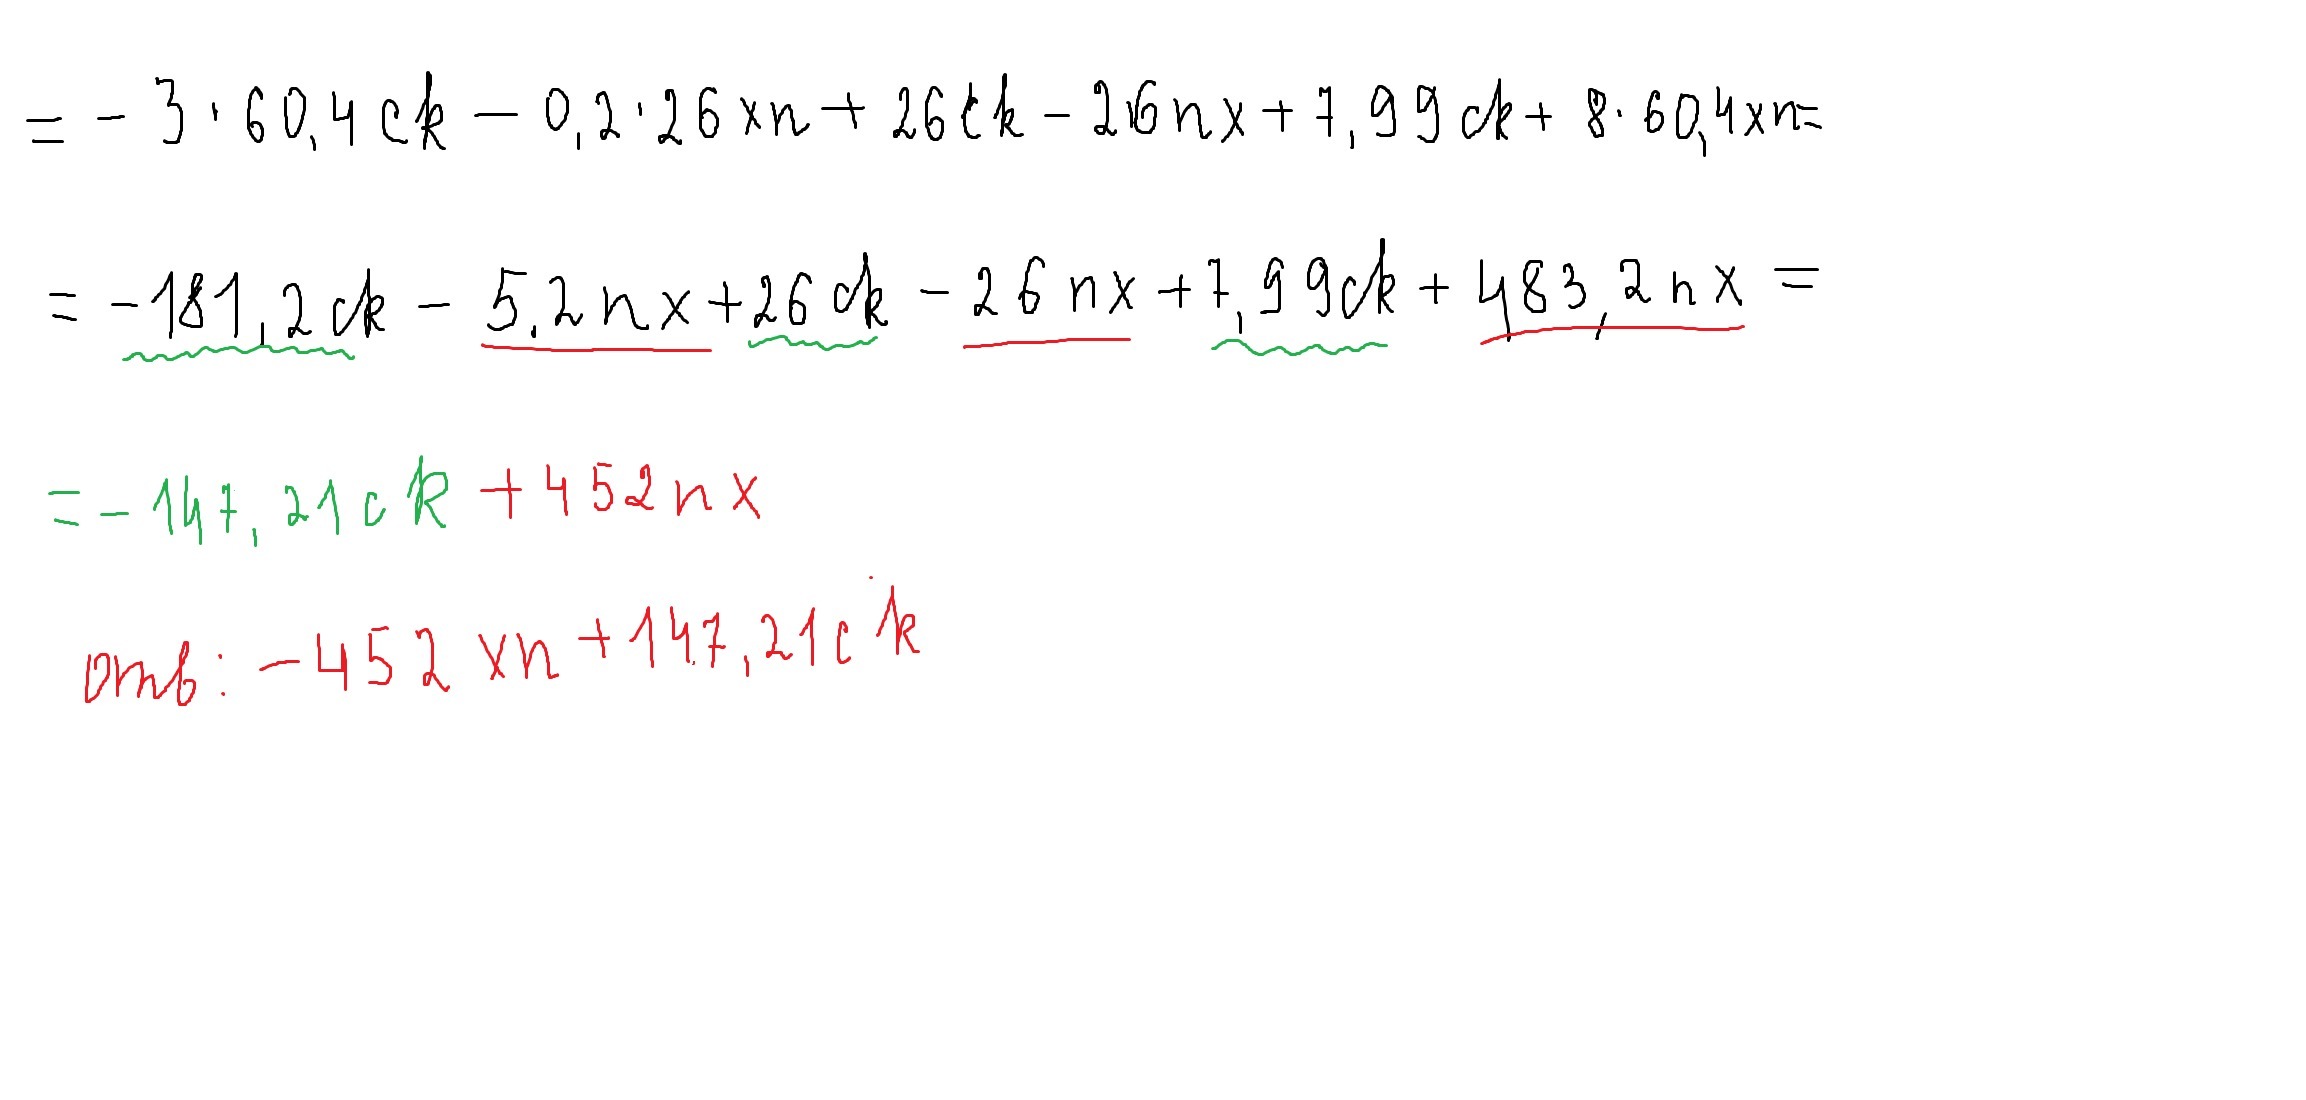 = - 3 · 60,4 ck - 0,2 · 26 xn + 26 ck - 26 nx + 7,99 ck + 8 · 60,4 xn =
= - 181,2 ck - 5,2 nx + 26 ck - 26 nx + 7,99 ck + 483,2 nx =
= - 147,21 ck + 452 nx
Отв: - 452 xn + 147,21 ck